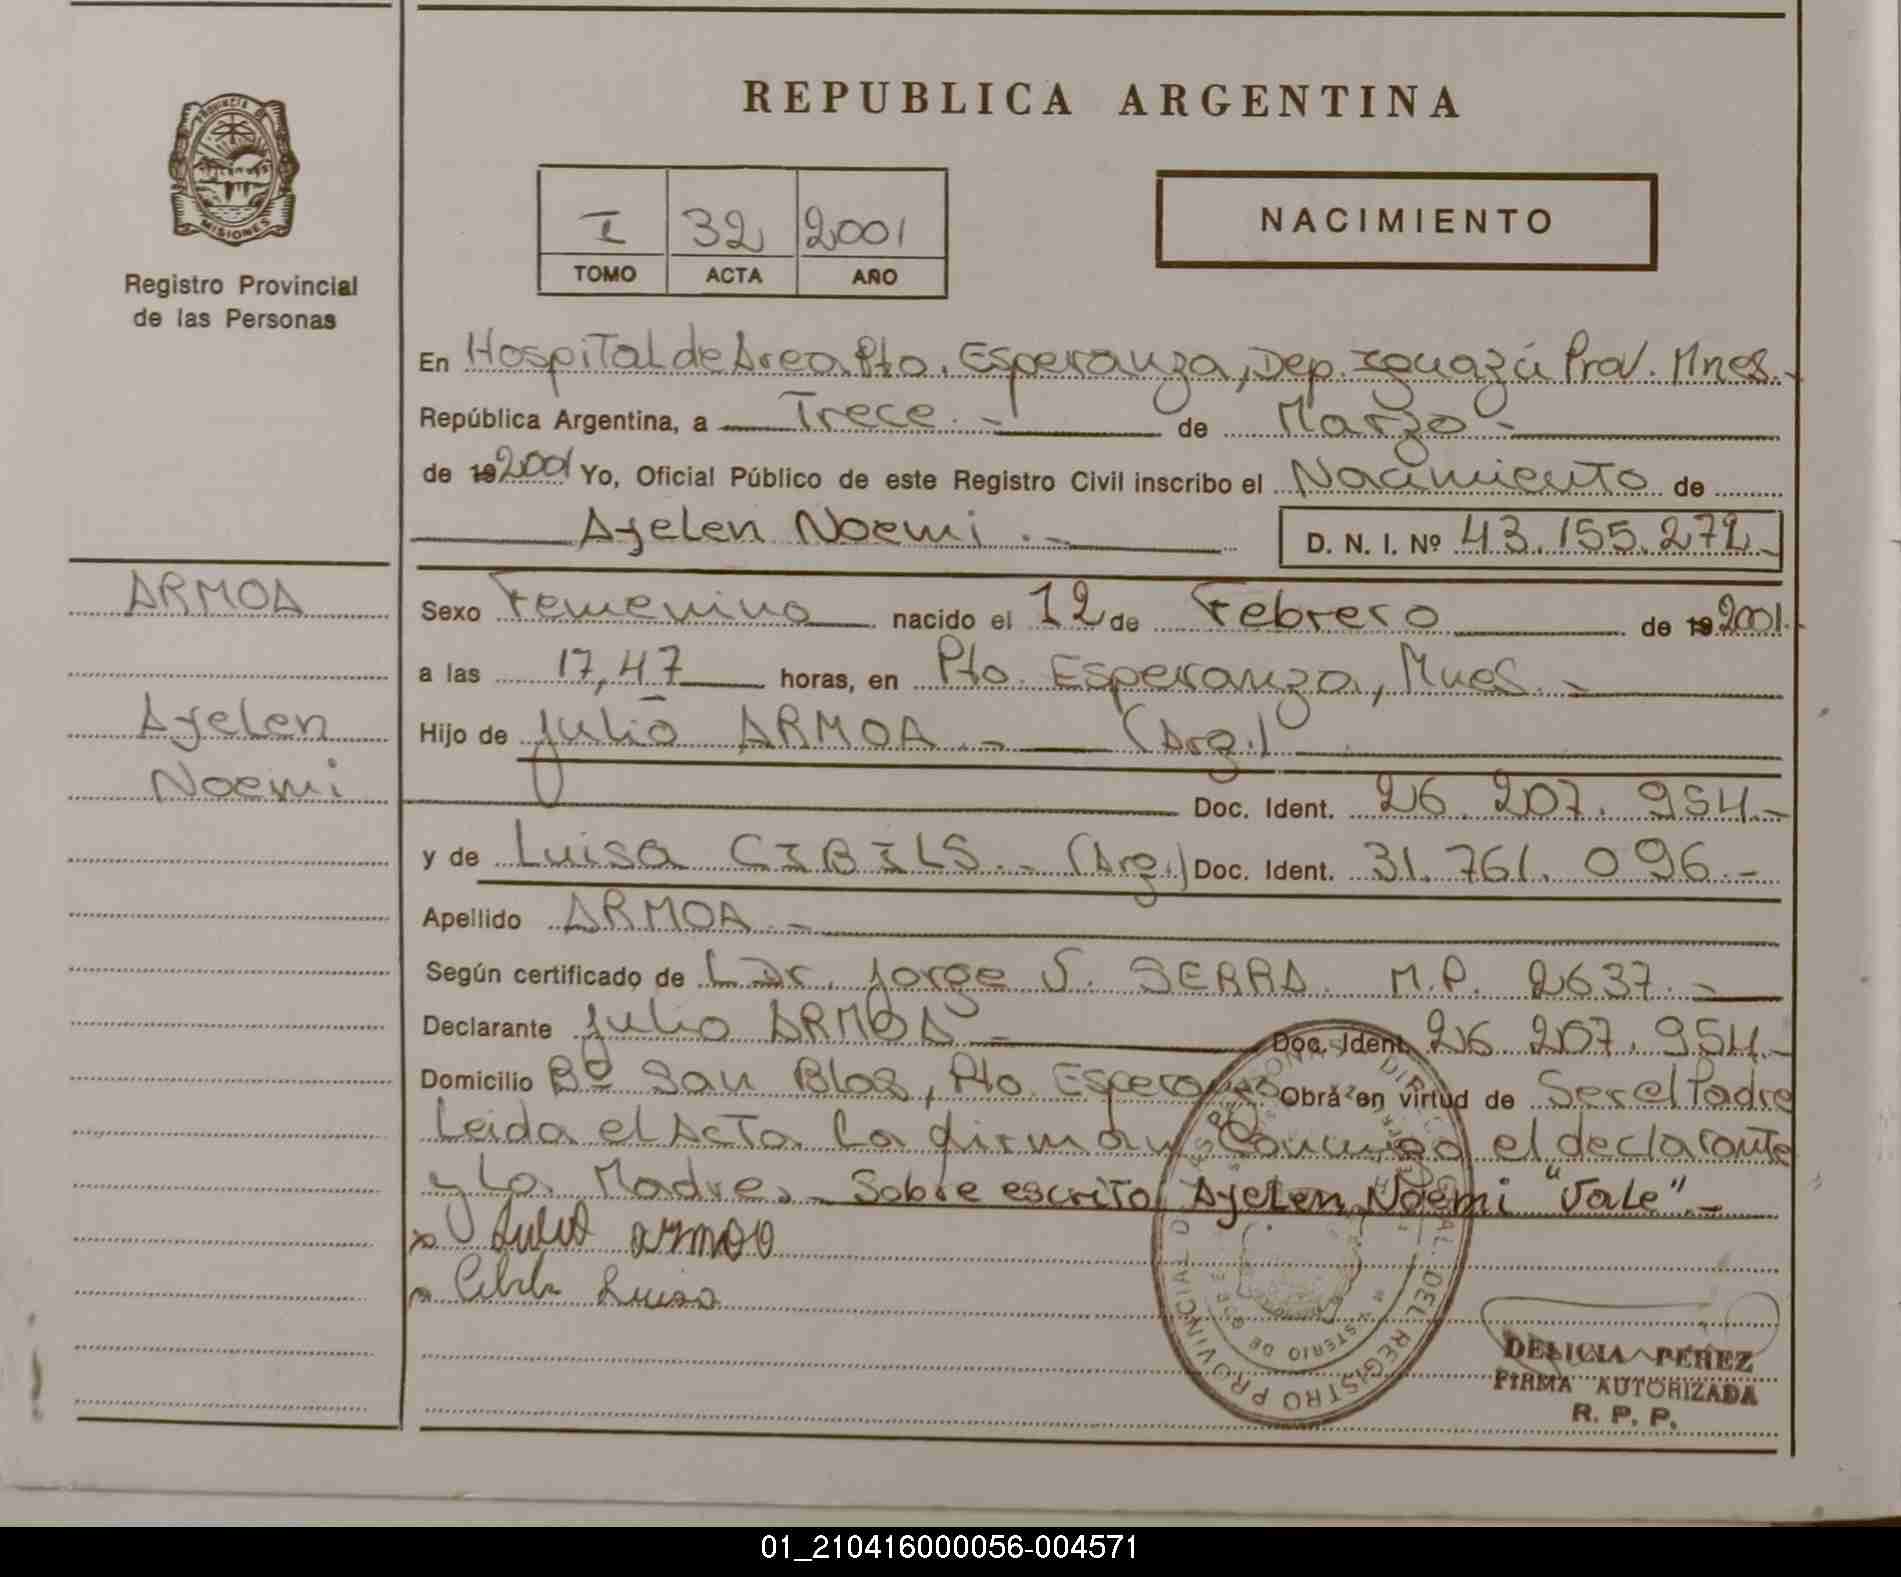 REPUBLICA ARGENTINA
PROVINCIA DE
MISIONES
Registro Provincial
de las Personas
I 32 2001
TOMO ACTA AÑO
NACIMIENTO
En Hospital de Area Pto. Esperanza, Dep. Iguazú Prov. Mnes.-
República Argentina, a Trece.- de Marzo-
de 192001 Yo, Oficial Público de este Registro Civil inscribo el Nacimiento de
Ayelen Noemi.- D. N. I. Nº 43.155.272-
ARMOA
Ayelen
Noemi
Sexo Femenino nacido el 12 de Febrero de 192001.
a las 17,47 horas, en Pto. Esperanza, Mnes.-
Hijo de Julio ARMOA.- (Arg.)
Doc. Ident. 26.207.954.-
y de Luisa CIBILS.- (Arg.) Doc. Ident. 31.761.096.-
Apellido ARMOA.-
Según certificado de Dr. Jorge S. SERRA. M.P. 2637.-
Declarante Julio ARMOA Doc. Ident. 26.207.954.-
Domicilio Bº San Blas, Pto. Esperanza Obra en virtud de Ser el Padre
Leida el Acta la firman Conmigo el declarante
y La Madre.- Sobre escrito Ayelen Noemi "Vale".-
Julio armoa
Cibils Luisa
DEL REGISTRO PROVINCIAL D
MINISTERIO DE GOB
DELICIA PEREZ
FIRMA AUTORIZADA
R. P. P.
01_210416000056-004571